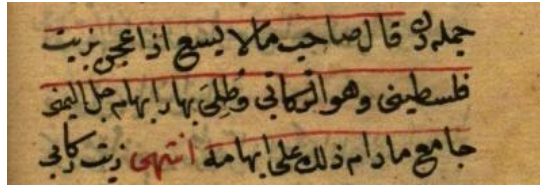 جمله ان قال صاحب مالا يسع اذا عجن بزيت
فلسطينى وهو الركابى وطلى بها ابهام رجل اليمنى
جامع مادام ذلك على ابهامه انتهى زيت ركابى